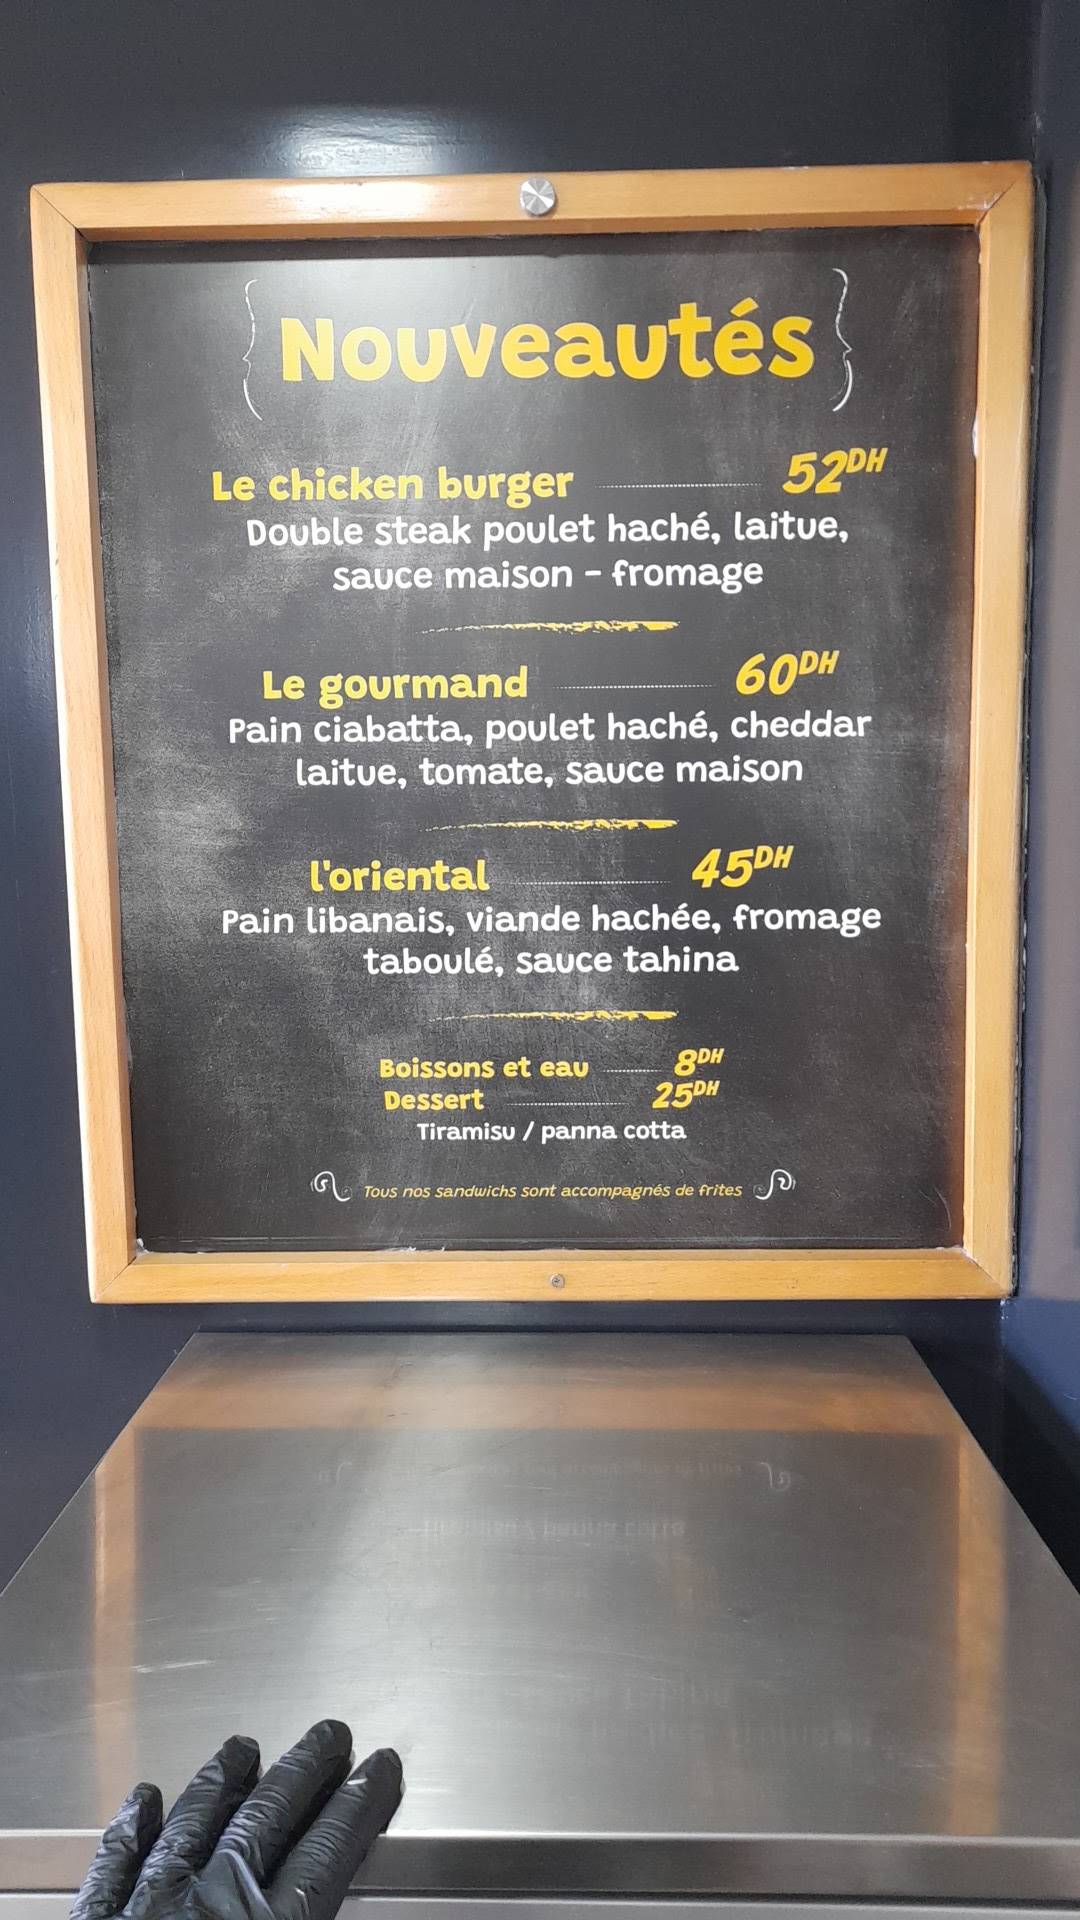 Nouveautés
Le chicken burger 52DH
Double steak poulet haché, laitue,
sauce maison - fromage
Le gourmand 60DH
Pain ciabatta, poulet haché, cheddar
laitue, tomate, sauce maison
l'oriental 45DH
Pain libanais, viande hachée, fromage
taboulé, sauce tahina
Boissons et eau 8DH
Dessert 25DH
Tiramisu / panna cotta
Tous nos sandwichs sont accompagnés de frites